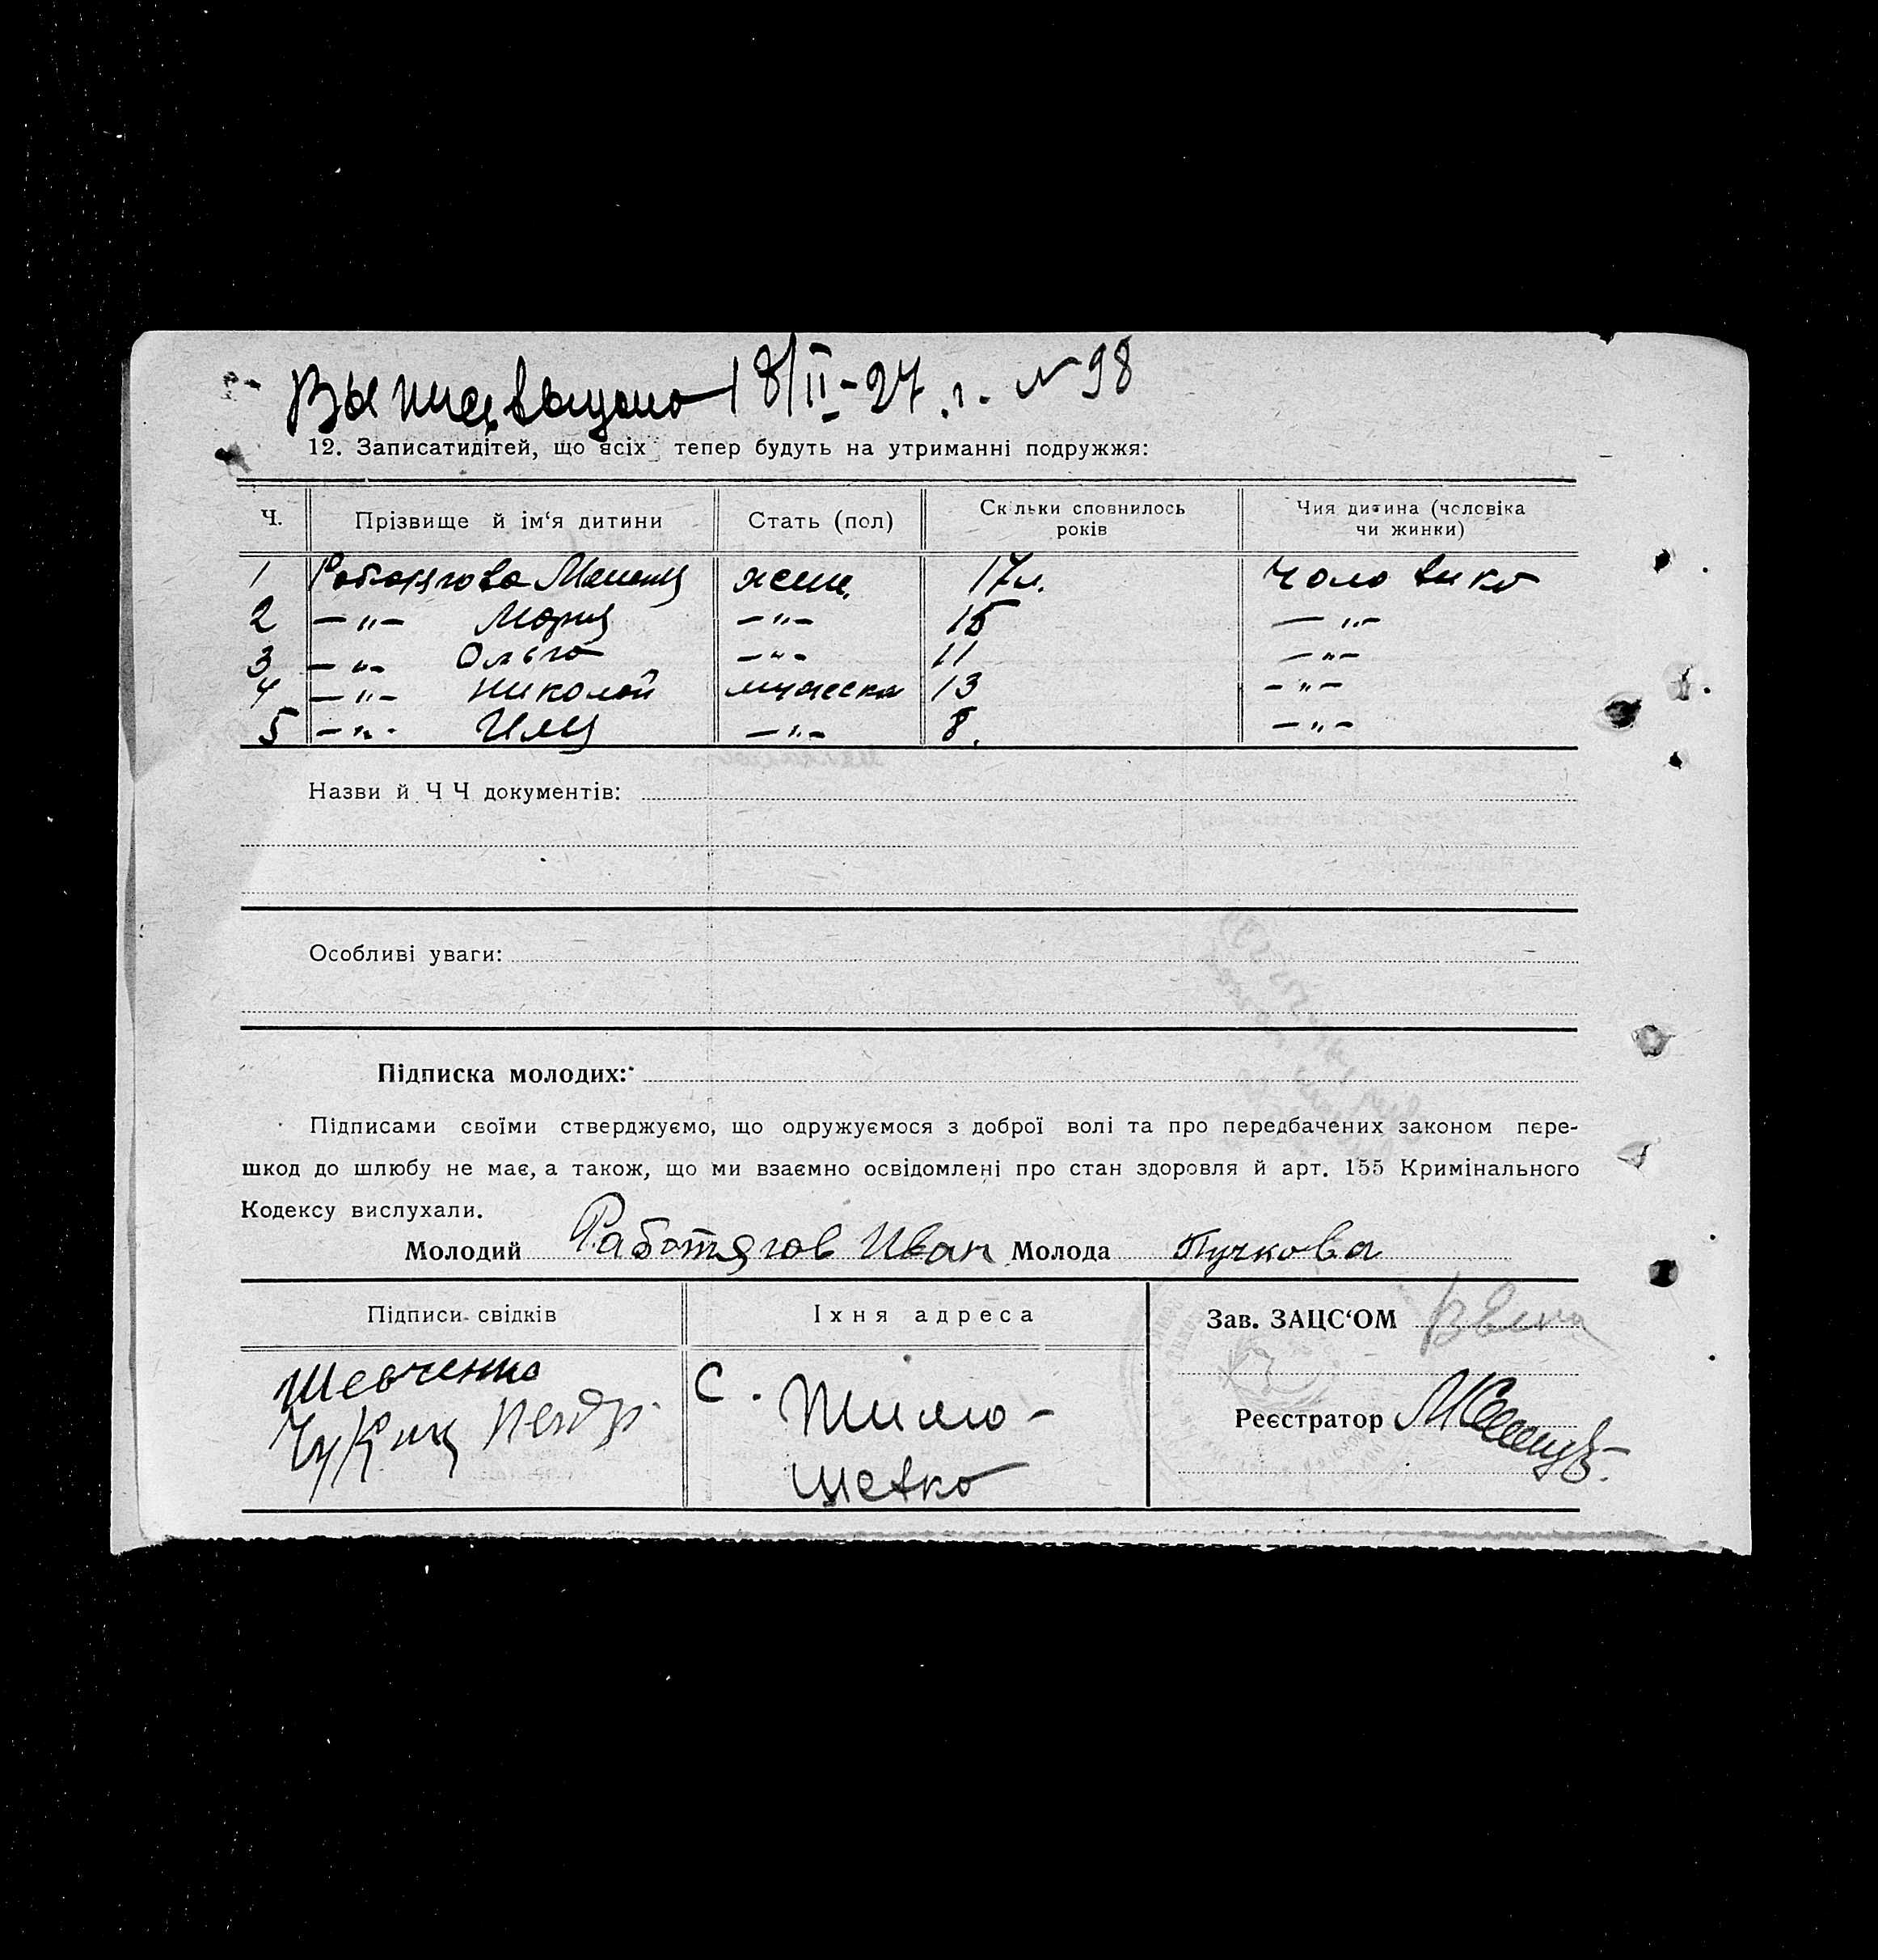 18/II-27 г. №98
12. Записатидітей, що ясіх тепер будуть на утриманні подружжя:
Ч. Прізвище й ім‘я дитини Стать (пол) Скільки сповнилось років Чия дитина (чоловіка чи жинки)
1 Работягова жен. 17л. Чоловика
2 —"— Мария —"— 15 —"—
3 —"— Ольга —"— 11 —"—
4 —"— Николай мужеска 13 —"—
5 —"— Илия —"— 8. —"—
Назви й Ч Ч документів:
Особливі уваги:
Підписка молодих:
Підписами своїми стверджуємо, що одружуємося з доброї волі та про передбачених законом пере-
шкод до шлюбу не має, а також, що ми взаємно освідомлені про стан здоровля й арт. 155 Кримінального
Кодексу вислухали.
Молодий Работягов Иван Молода Пучкова
Підписи свідків Їхня адреса Зав. ЗАЦС‘ОМ
Шевченко с.
Реєстратор